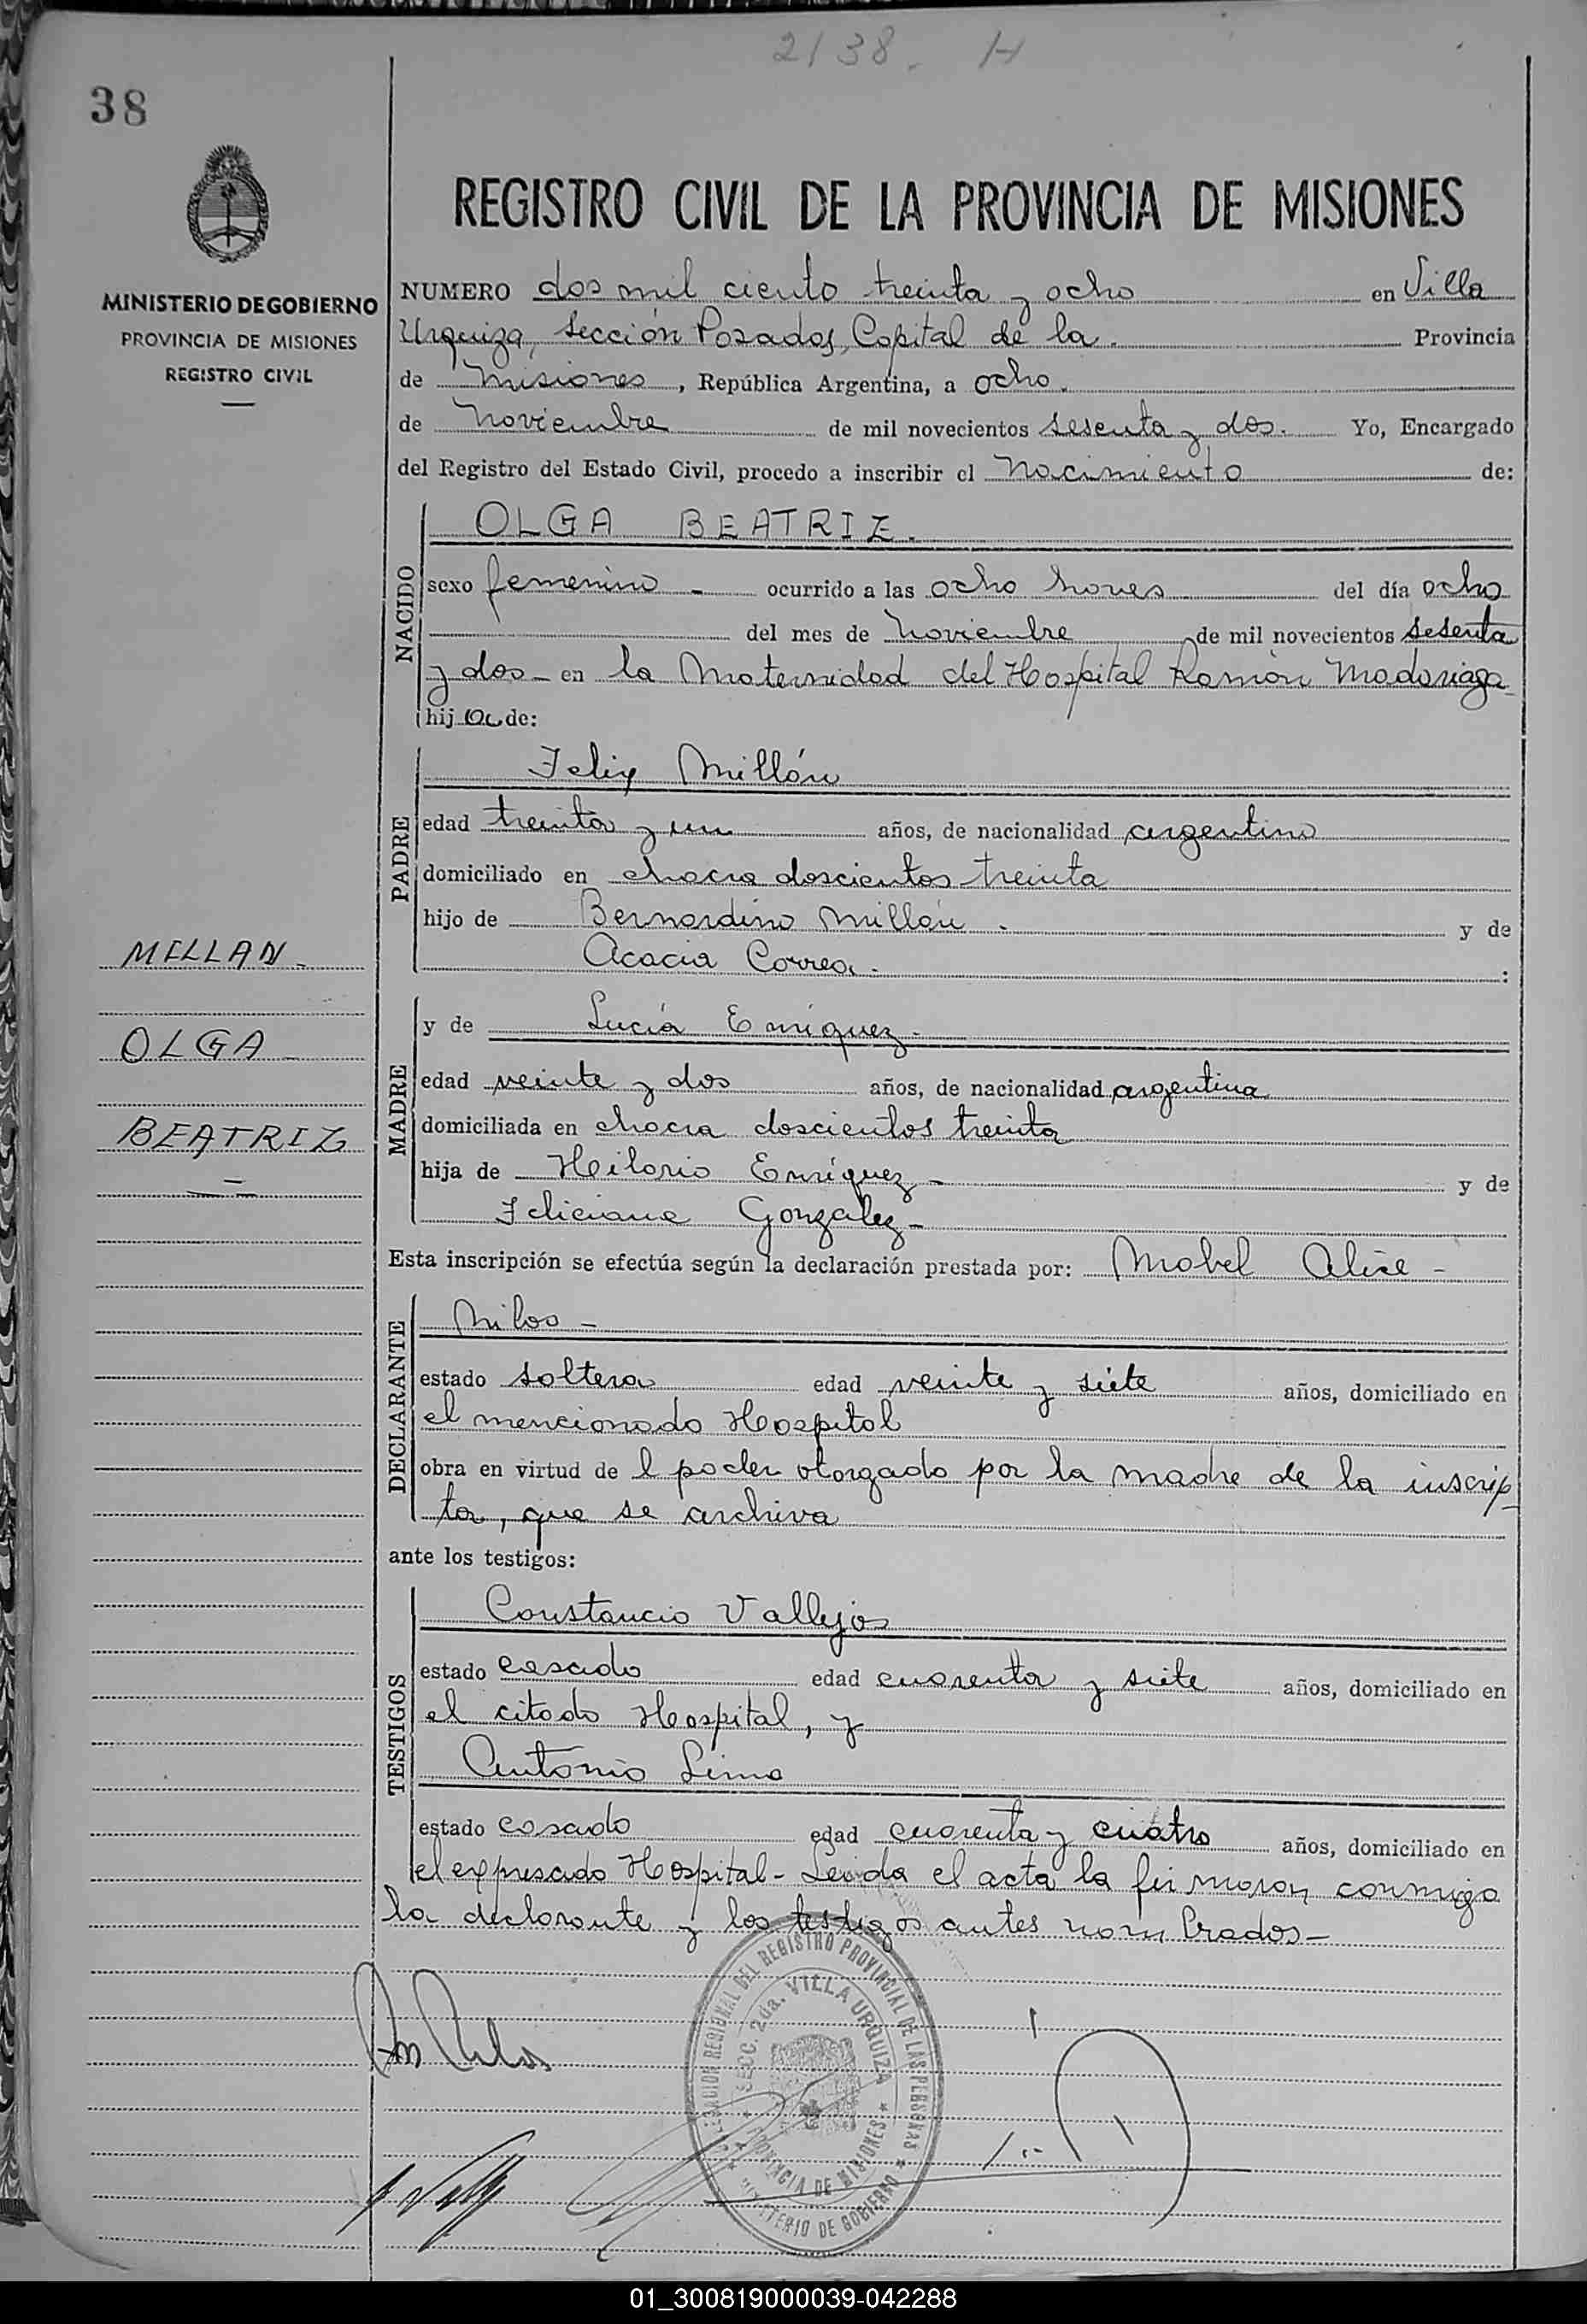 2138. H
38
MINISTERIO DE GOBIERNO
PROVINCIA DE MISIONES
REGISTRO CIVIL
REGISTRO CIVIL DE LA PROVINCIA DE MISIONES
NUMERO dos mil ciento treinta y ocho en Villa
Urquiza, Sección Posadas, Capital de la. Provincia
de Misiones, República Argentina, a ocho.
de Noviembre de mil novecientos sesenta y dos. Yo, Encargado
del Registro del Estado Civil, procedo a inscribir el Nacimiento de:
NACIDO
OLGA BEATRIZ.
sexo femenino - ocurrido a las ocho horas del día ocho
del mes de Noviembre de mil novecientos sesenta
y dos - en la Maternidad del Hospital Ramón Madariaga
hija de:
PADRE
Felix Millán
edad treinta y un años, de nacionalidad argentino
domiciliado en chacra doscientos treinta
hijo de Bernardino Millán. y de
Acacia Correa. :
MILLAN -
OLGA -
BEATRIZ
MADRE
y de Lucía Enriquez -
edad veinte y dos años, de nacionalidad argentina
domiciliada en chacra doscientos treinta
hija de Hilario Enríquez - y de
Feliciana Gonzalez -
Esta inscripción se efectúa según la declaración prestada por: Mabel Alice -
DECLARANTE
Milos -
estado soltera edad veinte y siete años, domiciliado en
el mencionado Hospital
obra en virtud de l poder otorgado por la madre de la inscrip-
ta, que se archiva
ante los testigos:
TESTIGOS
Constancio Vallejos
estado casado edad cuarenta y siete años, domiciliado en
el citado Hospital, y
Antonio Lima
estado casado edad cuarenta y cuatro años, domiciliado en
el expresado Hospital - Leida el acta la firmaron conmigo
la declarante y los testigos antes nombrados -
DELEGACION REGIONAL DEL REGISTRO PROVINCIAL DE LAS PERSONAS
SECC. 2da. VILLA URQUIZA
PROVINCIA DE MISIONES
MINISTERIO DE GOBIERNO
01_300819000039-042288